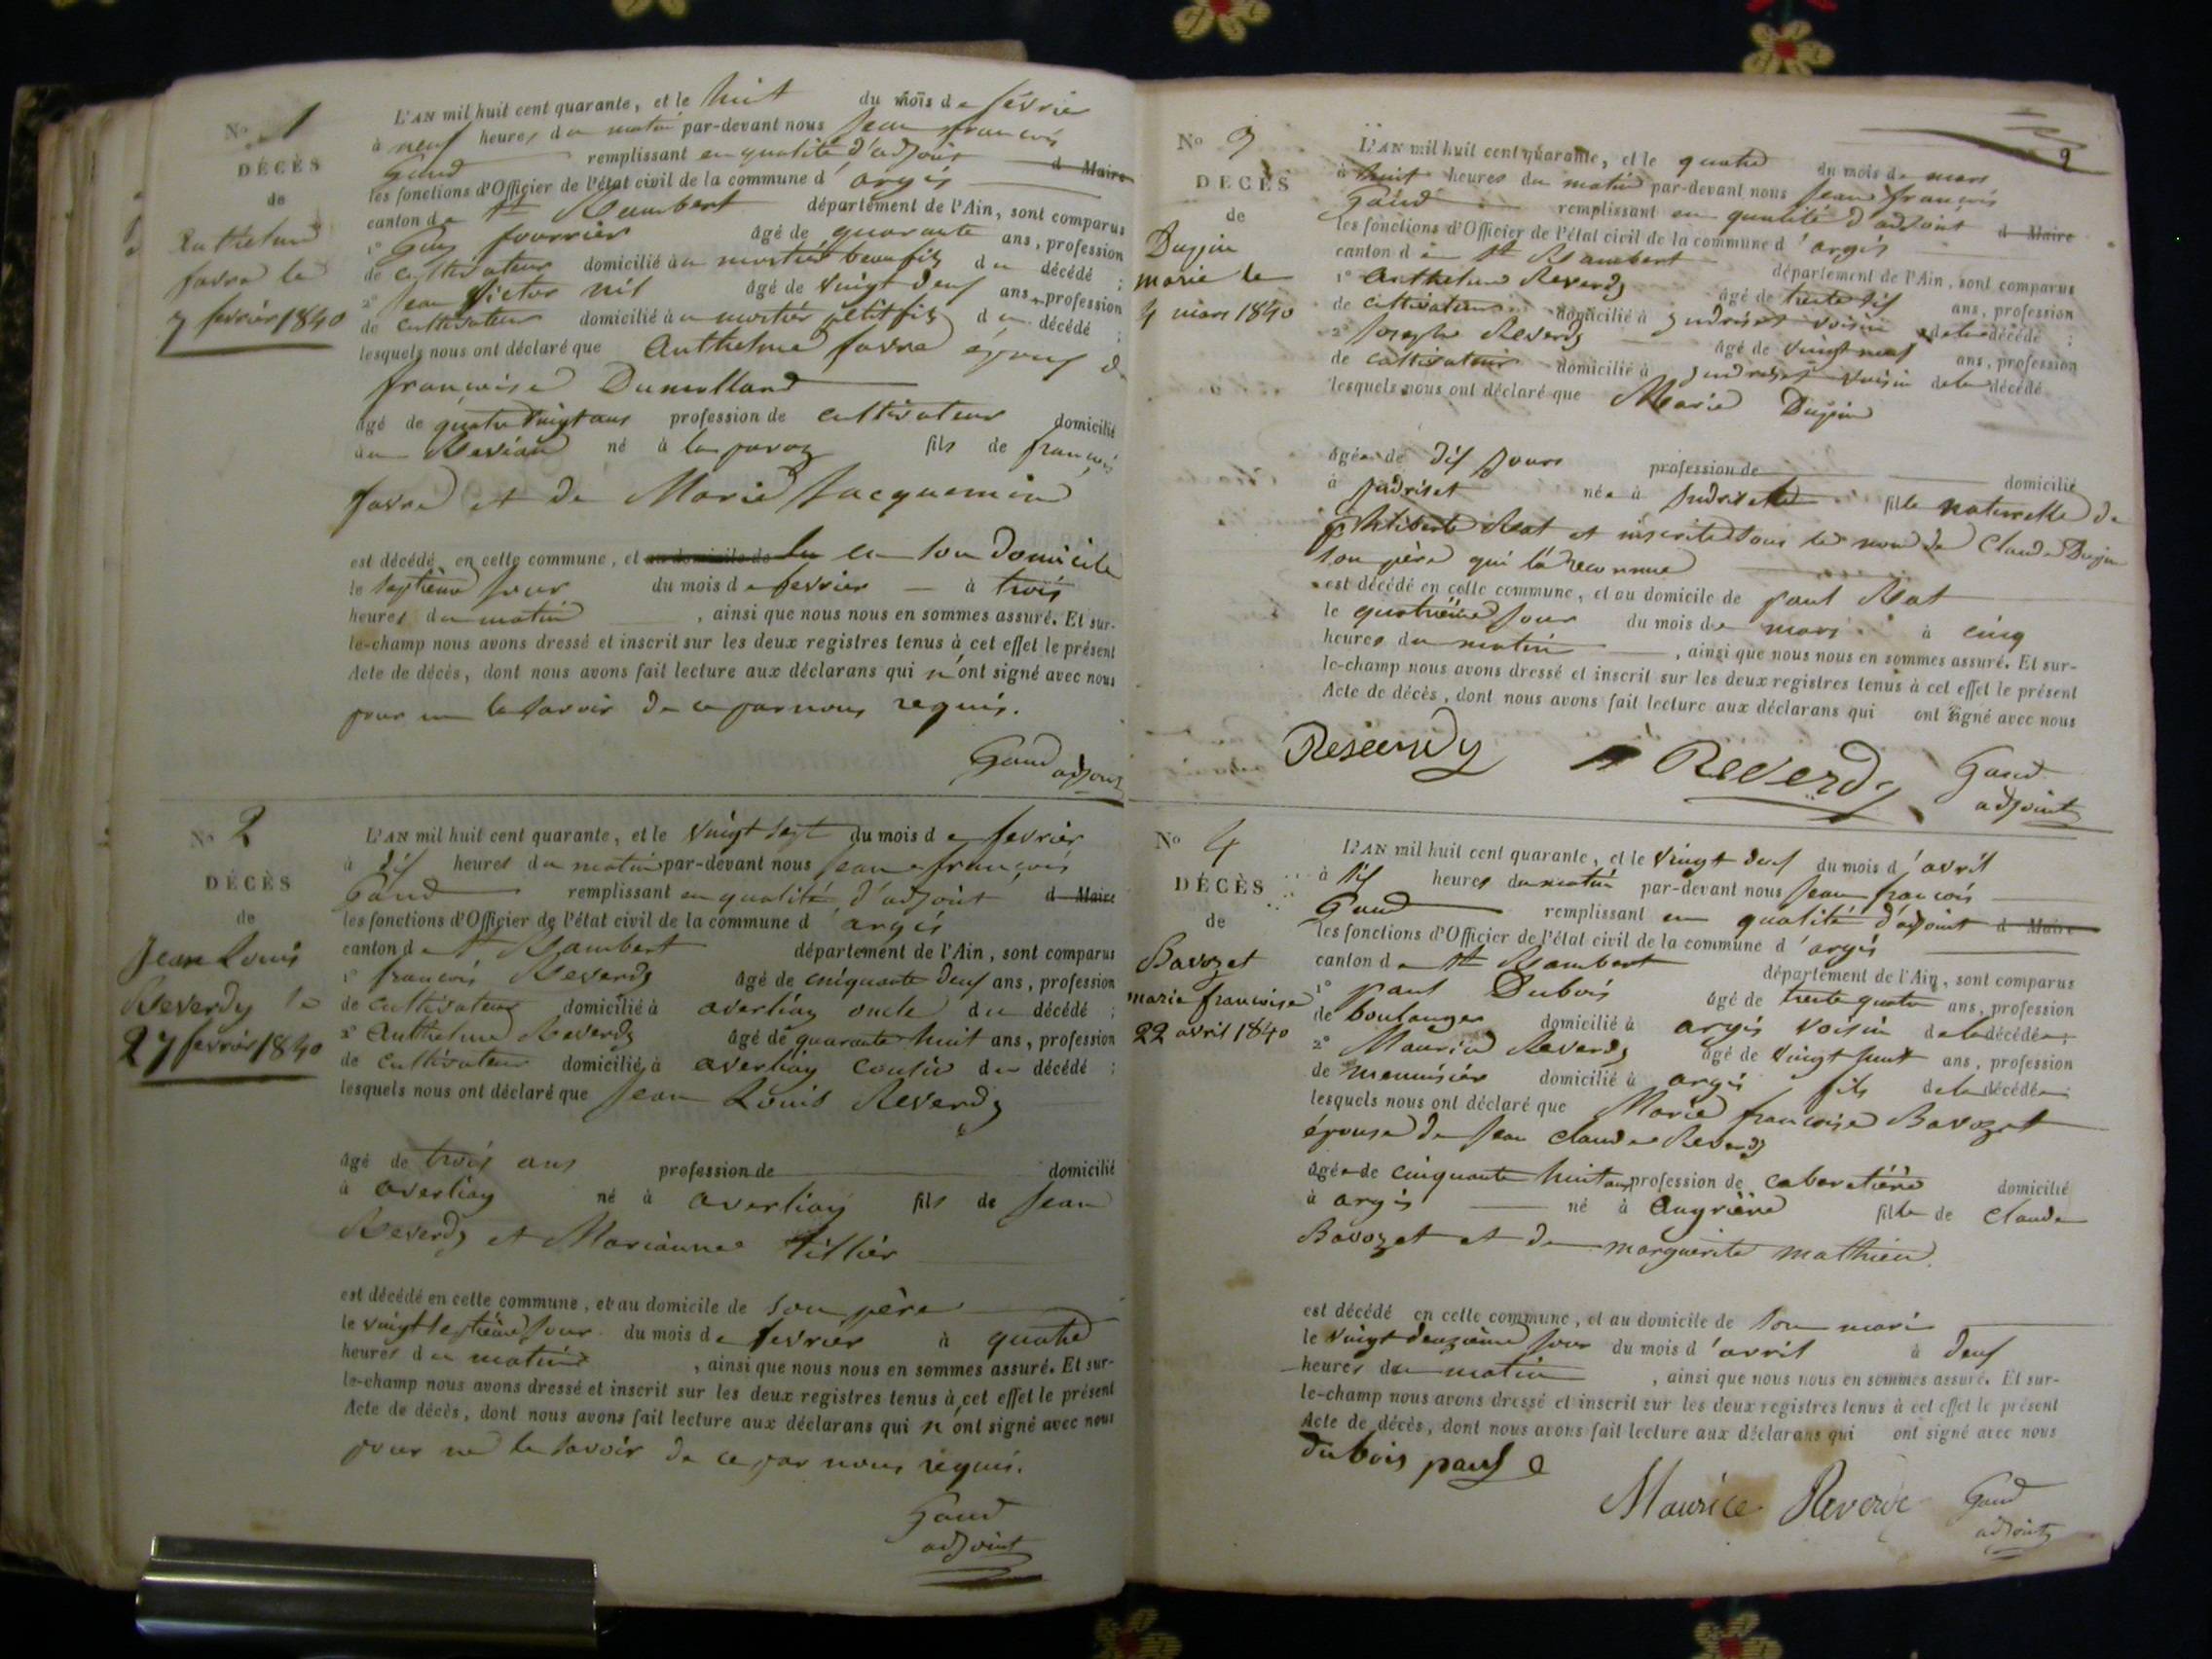 No 1
DÉCÈS
de
Anthelme
favre le
7 fevrier 1840
L'AN mil huit cent quarante, et le huit du mois de février
à neuf heures du matin par-devant nous Jean françois
Gaud remplissant en qualité d'adjoint d Maire
les fonctions d'Officier de l'état civil de la commune d'argis
canton de St Rambert département de l'Ain, sont comparus
1° fourrier âgé de quarante ans, profession
de cultivateur domicilié au mortier beaufils du décédé ;
2° Jean Victor nil âgé de vingt deux ans, profession
de cultivateur domicilié au mortier petit fils du décédé ;
lesquels nous ont déclaré que Anthelme favre époux de
françoise Dumollard
âgé de quatre vingt ans profession de cultivateur domicilié
au né à la fils de françois
favre et de Marie Jacquemin
est décédé en cette commune, et au domicile de en son Domicile
le septieme jour du mois de fevrier à trois
heures du matin, ainsi que nous nous en sommes assuré. Et sur-
le-champ nous avons dressé et inscrit sur les deux registres tenus à cet effet le présent
Acte de décès, dont nous avons fait lecture aux déclarans qui n'ont signé avec nous
pour ne le savoir de ce par nous requis.
Gaud adjoint
No 2
DÉCÈS
de
Jean Louis
Reverdy le
27 fevrier 1840
L'AN mil huit cent quarante, et le vingt sept du mois de fevrier
à dix heures du matin par-devant nous Jean françois
Gaud remplissant en qualité d'adjoint d Maire
les fonctions d'Officier de l'état civil de la commune d'argis
canton de St Rambert département de l'Ain, sont comparus
1° françois Reverdy âgé de cinquante deux ans, profession
de cultivateur domicilié à averliay oncle du décédé ;
2° Anthelme Reverdy âgé de quarante huit ans, profession
de cultivateur domicilié à averliay cousin du décédé ;
lesquels nous ont déclaré que Jean Louis Reverdy
âgé de trois ans profession de domicilié
à averliay né à averliay fils de Jean
Reverdy et Marianne tillier
est décédé en cette commune, et au domicile de son père
le vingt septième jour du mois de fevrier à quatre
heures du matin, ainsi que nous nous en sommes assuré. Et sur-
le-champ nous avons dressé et inscrit sur les deux registres tenus à cet effet le présent
Acte de décès, dont nous avons fait lecture aux déclarans qui n'ont signé avec nous
pour ne le savoir de ce par nous requis.
Gaud
adjoint
2
No 3
DÉCÈS
de
Dujin
marie le
4 mars 1840
L'AN mil huit cent quarante, et le quatre du mois de mars
à huit heures du matin par-devant nous Jean françois
Gaud remplissant en qualité d'adjoint d Maire
les fonctions d'Officier de l'état civil de la commune d'argis
canton de St Rambert département de l'Ain, sont comparus
1° Anthelme Reverdy âgé de trente six ans, profession
de cultivateur domicilié à voisin de la décédé ;
2° Joseph Reverdy âgé de vingt neuf ans, profession
de cultivateur domicilié à voisin de la décédé
lesquels nous ont déclaré que Marie Dujin
âgée de dix jours profession de domicilié
à née à fille naturelle de
philiberte Rat et inscrite sous le nom de Claude Dujin
son père qui l'a reconnue
est décédé en cette commune, et au domicile de paul Rat
le quatrième jour du mois de mars à cinq
heures du matin, ainsi que nous nous en sommes assuré. Et sur-
le-champ nous avons dressé et inscrit sur les deux registres tenus à cet effet le présent
Acte de décès, dont nous avons fait lecture aux déclarans qui ont signé avec nous
Reverdy Reverdy Gaud
adjoint
No 4
DÉCÈS
de
Bavozet
marie françoise
22 avril 1840
L'AN mil huit cent quarante, et le vingt deux du mois d'avril
à dix heures du matin par-devant nous Jean françois
Gaud remplissant en qualité d'adjoint d Maire
les fonctions d'Officier de l'état civil de la commune d'argis
canton de St Rambert département de l'Ain, sont comparus
1° paul Dubois âgé de trente quatre ans, profession
de boulanger domicilié à argis voisin de la décédée ;
2° Maurice Reverdy âgé de vingt huit ans, profession
de menuisier domicilié à argis fils de la décédée
lesquels nous ont déclaré que Marie françoise Bavozet
épouse de Jean claude Reverdy
âgée de cinquante huit ans profession de cabaretière domicilié
à argis né à fille de claude
Bavozet et de marguerite mathieu
est décédé en cette commune, et au domicile de son mari
le vingt deuxième jour du mois d'avril à deux
heures du matin, ainsi que nous nous en sommes assuré. Et sur-
le-champ nous avons dressé et inscrit sur les deux registres tenus à cet effet le présent
Acte de décès, dont nous avons fait lecture aux déclarans qui ont signé avec nous
dubois paul
Maurice Reverdy Gaud
adjoint